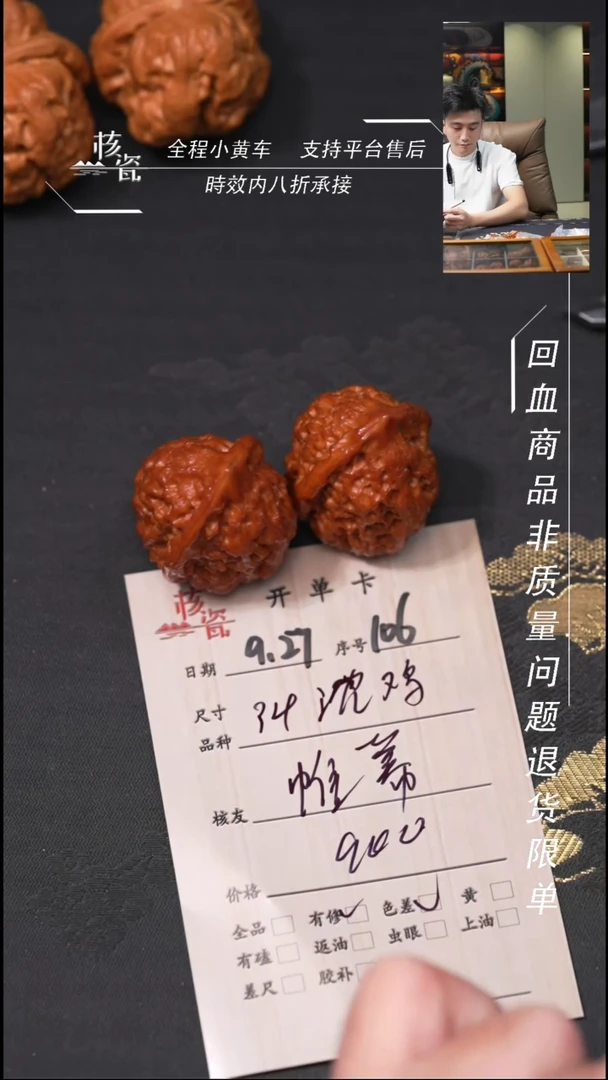 核瓷
全程小黄车 支持平台售后
時效内八折承接
回血商品非质量问题退货限单
核瓷
开单卡
日期 9.27 序号 106
尺寸 34
品种
核友 帷幕
900
价格
全品 有修 色差 黄
有磕 返油 虫眼 上油
差尺 胶补